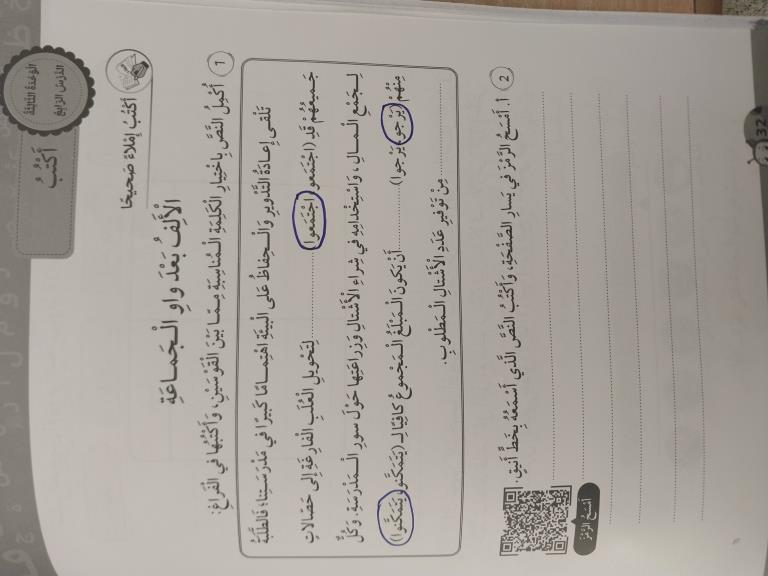 الوَحْدَةُ الثّالِثَةُ
الدَّرْسُ الرّابِعُ
أَكْتُبُ
أَكْتُبُ إِمْلاءً صَحيحًا
الْأَلِفُ بَعْدَ واوِ الْجَماعَةِ
1 أُكْمِلُ النَّصَّ بِاخْتِيارِ الْكَلِمَةِ الْمُناسِبَةِ مِمّا بَيْنَ الْقَوْسَيْنِ، وَأَكْتُبُها في الْفَراغِ:
تَلْقى إِعادَةُ التَّدْويرِ وَالْحِفاظُ عَلى الْبيئَةِ اهْتِمامًا كَبيرًا في مَدْرَسَتِنا؛ فَالطَّلَبَةُ
جَميعُهُمْ قَدِ (اجْتَمَعو، اجْتَمَعوا) .................... لِتَحْويلِ الْعُلَبِ الْفارِغَةِ إِلى حَصّالاتٍ
لِجَمْعِ الْمالِ، وَاسْتِخْدامِهِ في شِراءِ الْأَشْتالِ وَزِراعَتِها حَوْلَ سورِ الْمَدْرَسَةِ. وَكُلٌّ
مِنْهُمْ (يَرْجو، يَرْجوا) .................... أَنْ يَكونَ الْمَبْلَغُ الْمَجْموعُ كافِيًا لِـ (يَتَمَكَّنو، يَتَمَكَّنوا)
.................... مِنْ تَوْفيرِ عَدَدِ الْأَشْتالِ الْمَطْلوبِ.
2 أ. أَمْسَحُ الرَّمْزَ في يَسارِ الصَّفْحَةِ، وَأَكْتُبُ النَّصَّ الَّذي أَسْمَعُهُ بِخَطٍّ أَنيقٍ.
أَمْسَحُ الرَّمْزَ
32